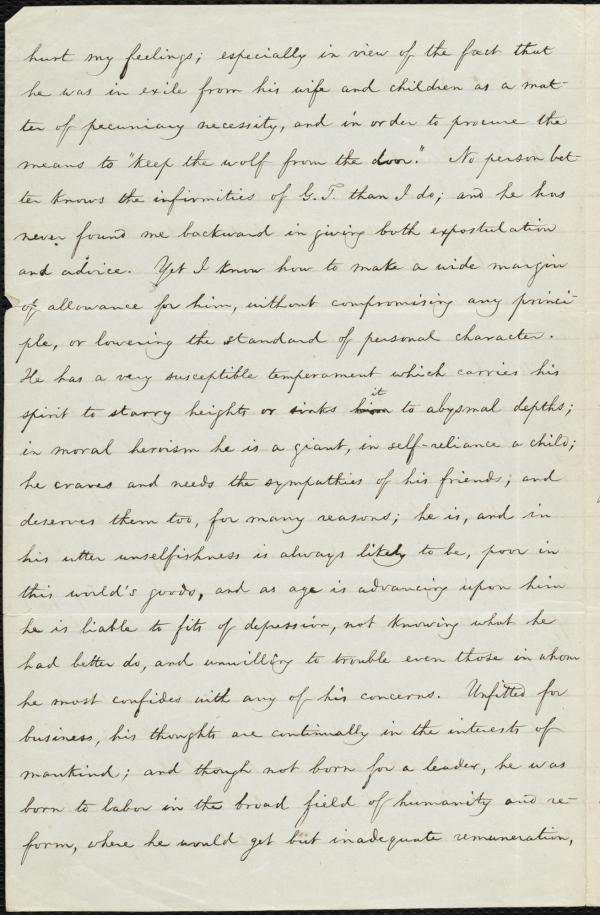 hurt my feelings; especially in view of the fact that
he was in exile from his wife and children as a mat-
ter of pecuniary necessity, and in order to procure the
means to "keep the wolf from the door." No person bet-
ter knows the infirmities of G. T. than I do; and he has
never found me backward in giving both expostulation
and advice. Yet I know how to make a wide margin
of allowance for him, without compromising any princi-
ple, or lowering the standard of personal character.
He has a very susceptible temperament which carries his
spirit to starry heights or sinks him it to abysmal depths;
in moral heroism he is a giant, in self-reliance a child;
he craves and needs the sympathies of his friends; and
deserves them too, for many reasons; he is, and in
his utter unselfishness is always likely to be, poor in
this world's goods, and as age is advancing upon him
he is liable to fits of depression, not knowing what he
had better do, and unwilling to trouble even those in whom
he most confides with any of his concerns. Unfitted for
business, his thoughts are continually in the interests of
mankind; and though not born for a leader, he was
born to labor in the broad field of humanity and re-
form, where he would get but inadequate remuneration,